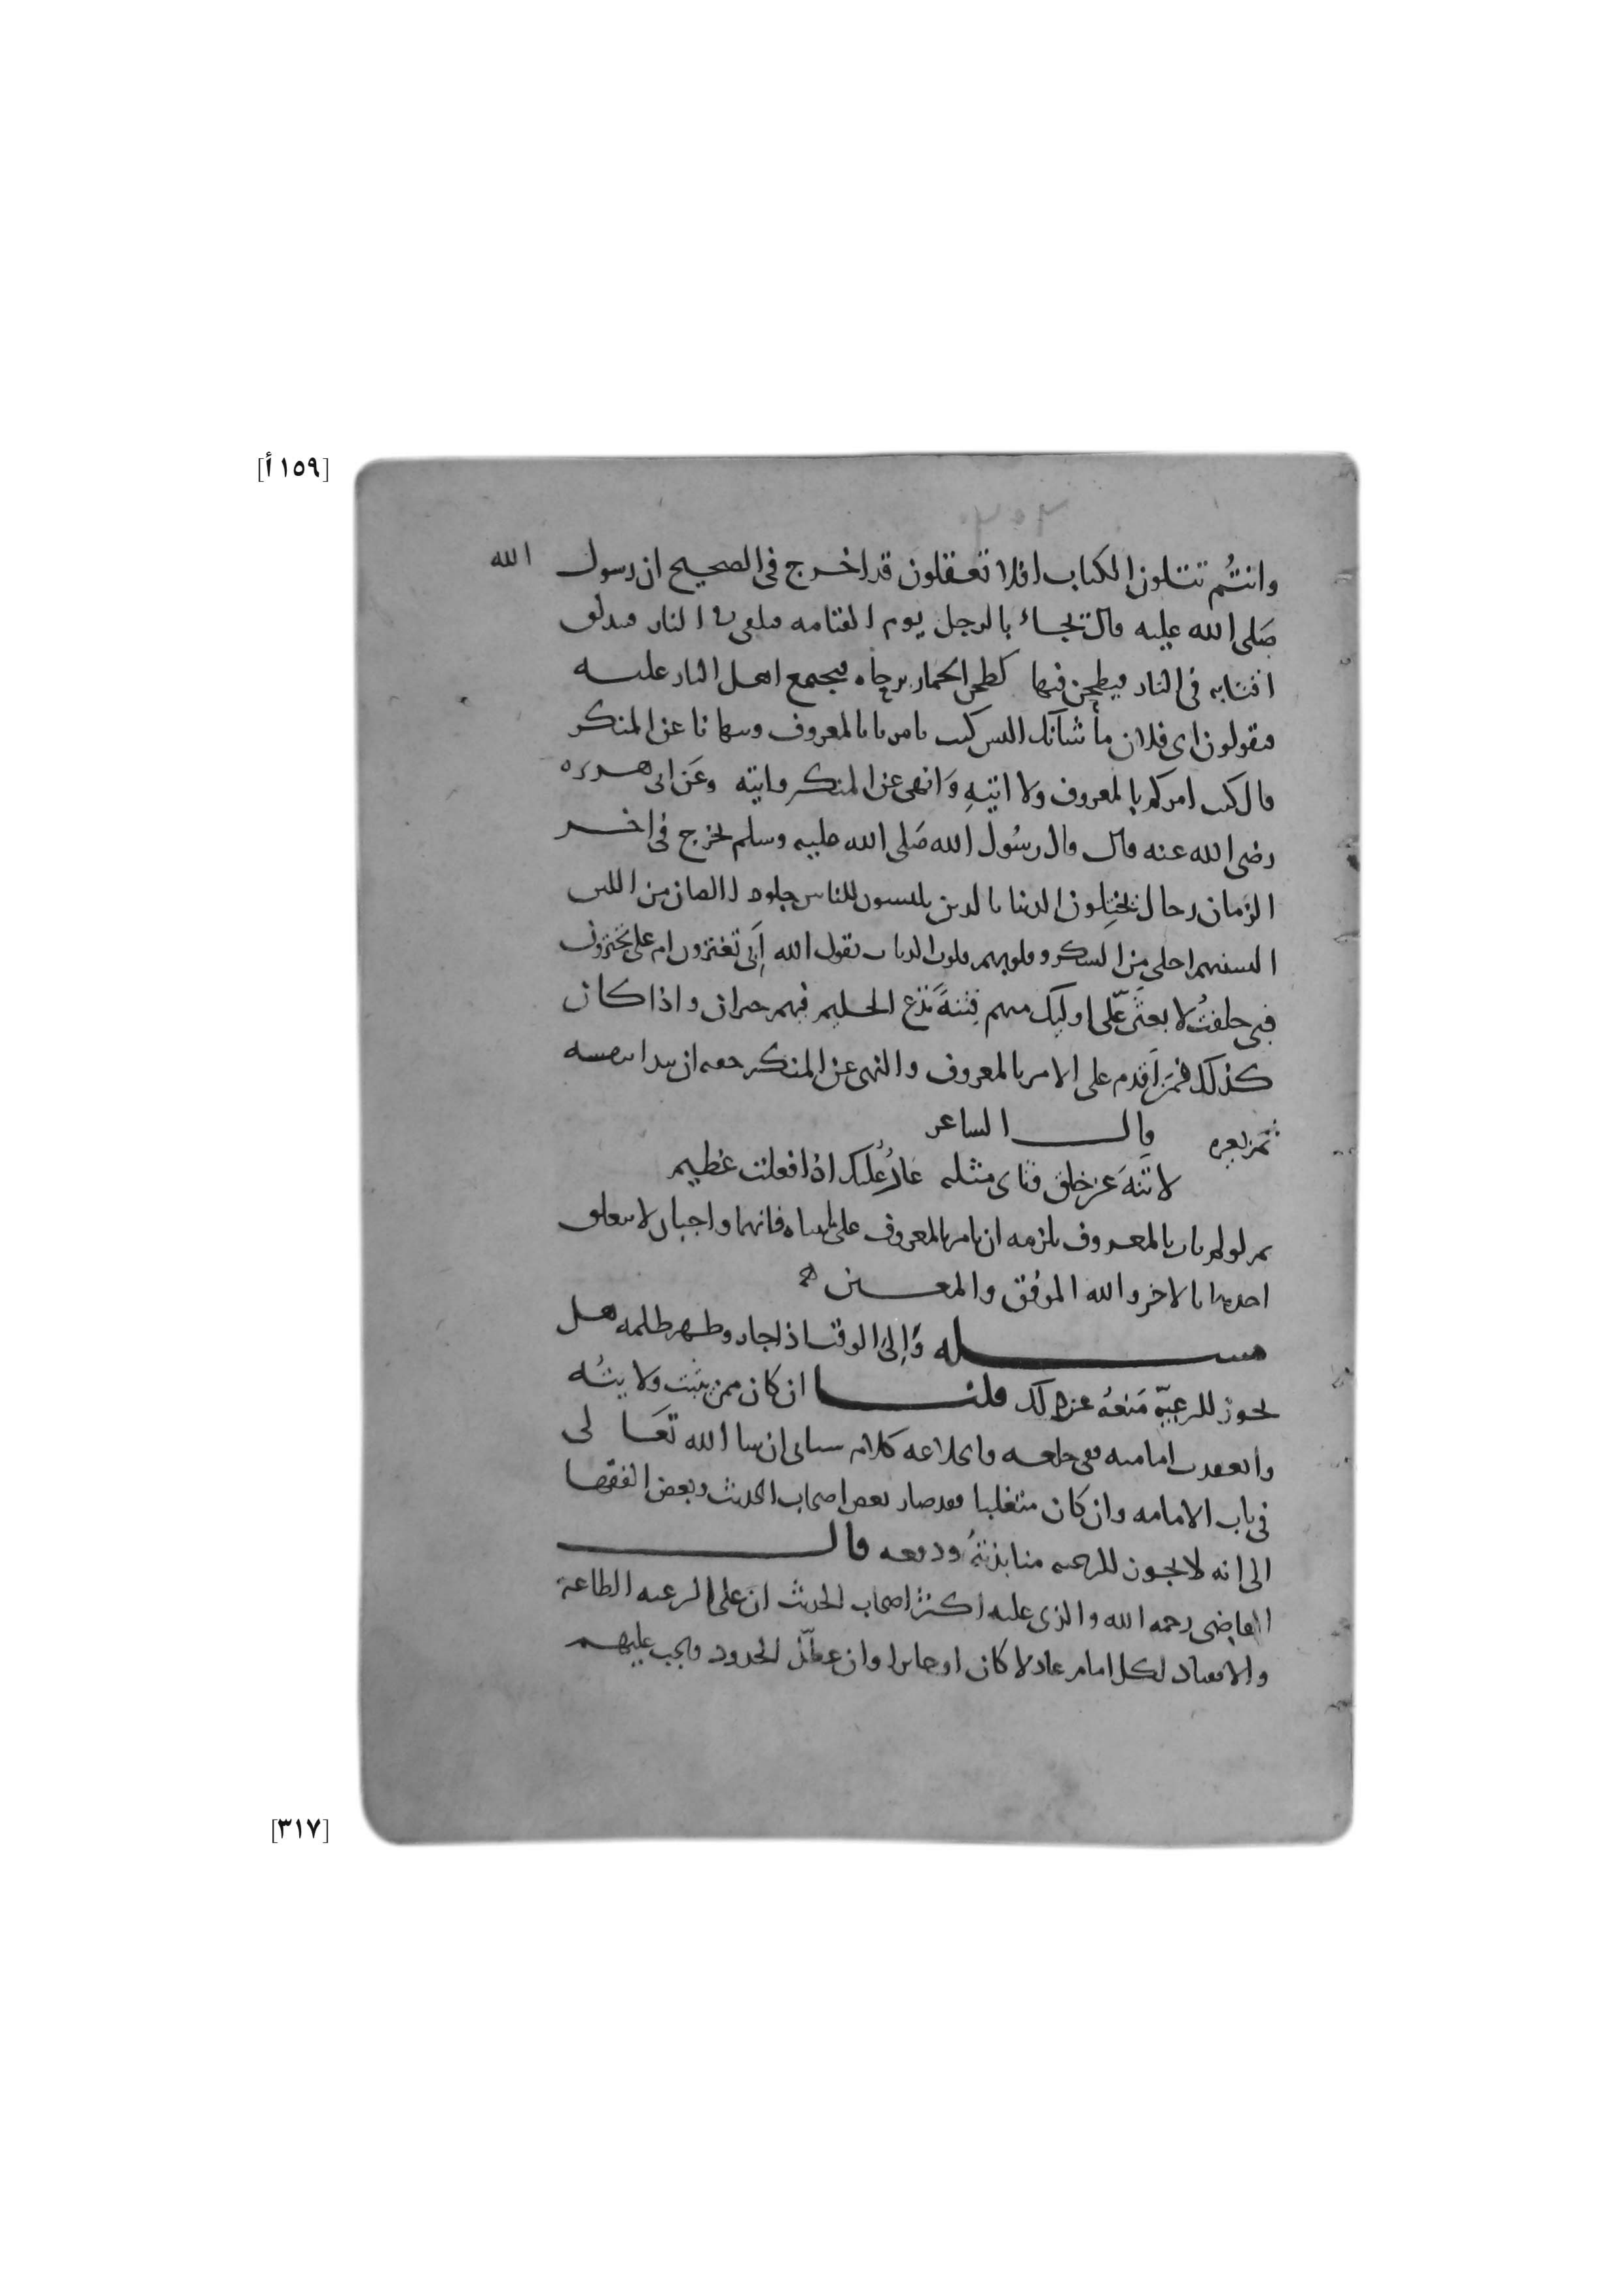 [١٥٩ أ]
وانتُم تتلون الكتاب افلا تعقلون قد اخرج في الصحيح ان رسول الله
صَلى الله عليه قال يجاء بالرجل يوم القيامه فيلقى في النار فتدلق
اقتابه في النار فيطحن فيها كطحن الحمار برحاه فيجتمع اهل النار عليه
فيقولون اى فلان ما شانك اليس كنت تامرنا بالمعروف وتنهانا عن المنكر
قال كنت امركم بالمعروف ولا اتيهِ وَانهى عن المنكر واتيه وعَن ابى هريره
رضى الله عنه قال قال رسُول الله صَلى الله عليه وسلم يخرج في اخر
الزمان رجال يختِلون الدنيا بالدين يلبسون للناس جلود الضان من اللين
السنتهم احلى مِن السكر وقلوبهم قلوب الذياب يقول الله أَبى تغترون ام على يجترون
فبى حلفتُ لابعثن عَلى اوليك منهم فِتنةً تدَع الحليم فيهم حيران واذا كان
كذلك فمَن اَقدم على الامر بالمعروف والنهى عن المنكر حقه ان يبدا بنفسه
ثم بغيره قال الشاعر
لا تنهَ عن خلق وتاتى مثله عارُ عُليك اذا فعلت عظيم
ثم لو لم يات بالمعروف يلزمه ان يامر بالمعروف على فانهما واجبان لا يتعلق
احدهما بالاخر والله الموفق والمعين
مسله وَالى الوقت اذا جار وظهر ظلمه هل
يجوز للرعيّة مَنعهُ عن ذلك قلنا ان كان ممن ولا
وانعقدت امامته ففى خلعه وانخلاعه كلام سياتى ان شا الله تعَالى
في باب الامامه وان كان متغلبا فقد صار بعض اصحاب الحديث وبعض الفقها
الى انه لا يجوز للرعيه منابذتهُ ودفعه قال
القاضى رحمه الله والذى عليه اكثر اصحاب الحديث ان على الرعيه الطاعة
والانقياد لكل امام عادلا كان او جايرا وان عطّل الحدود ويجب عليهم
[٣١٧]